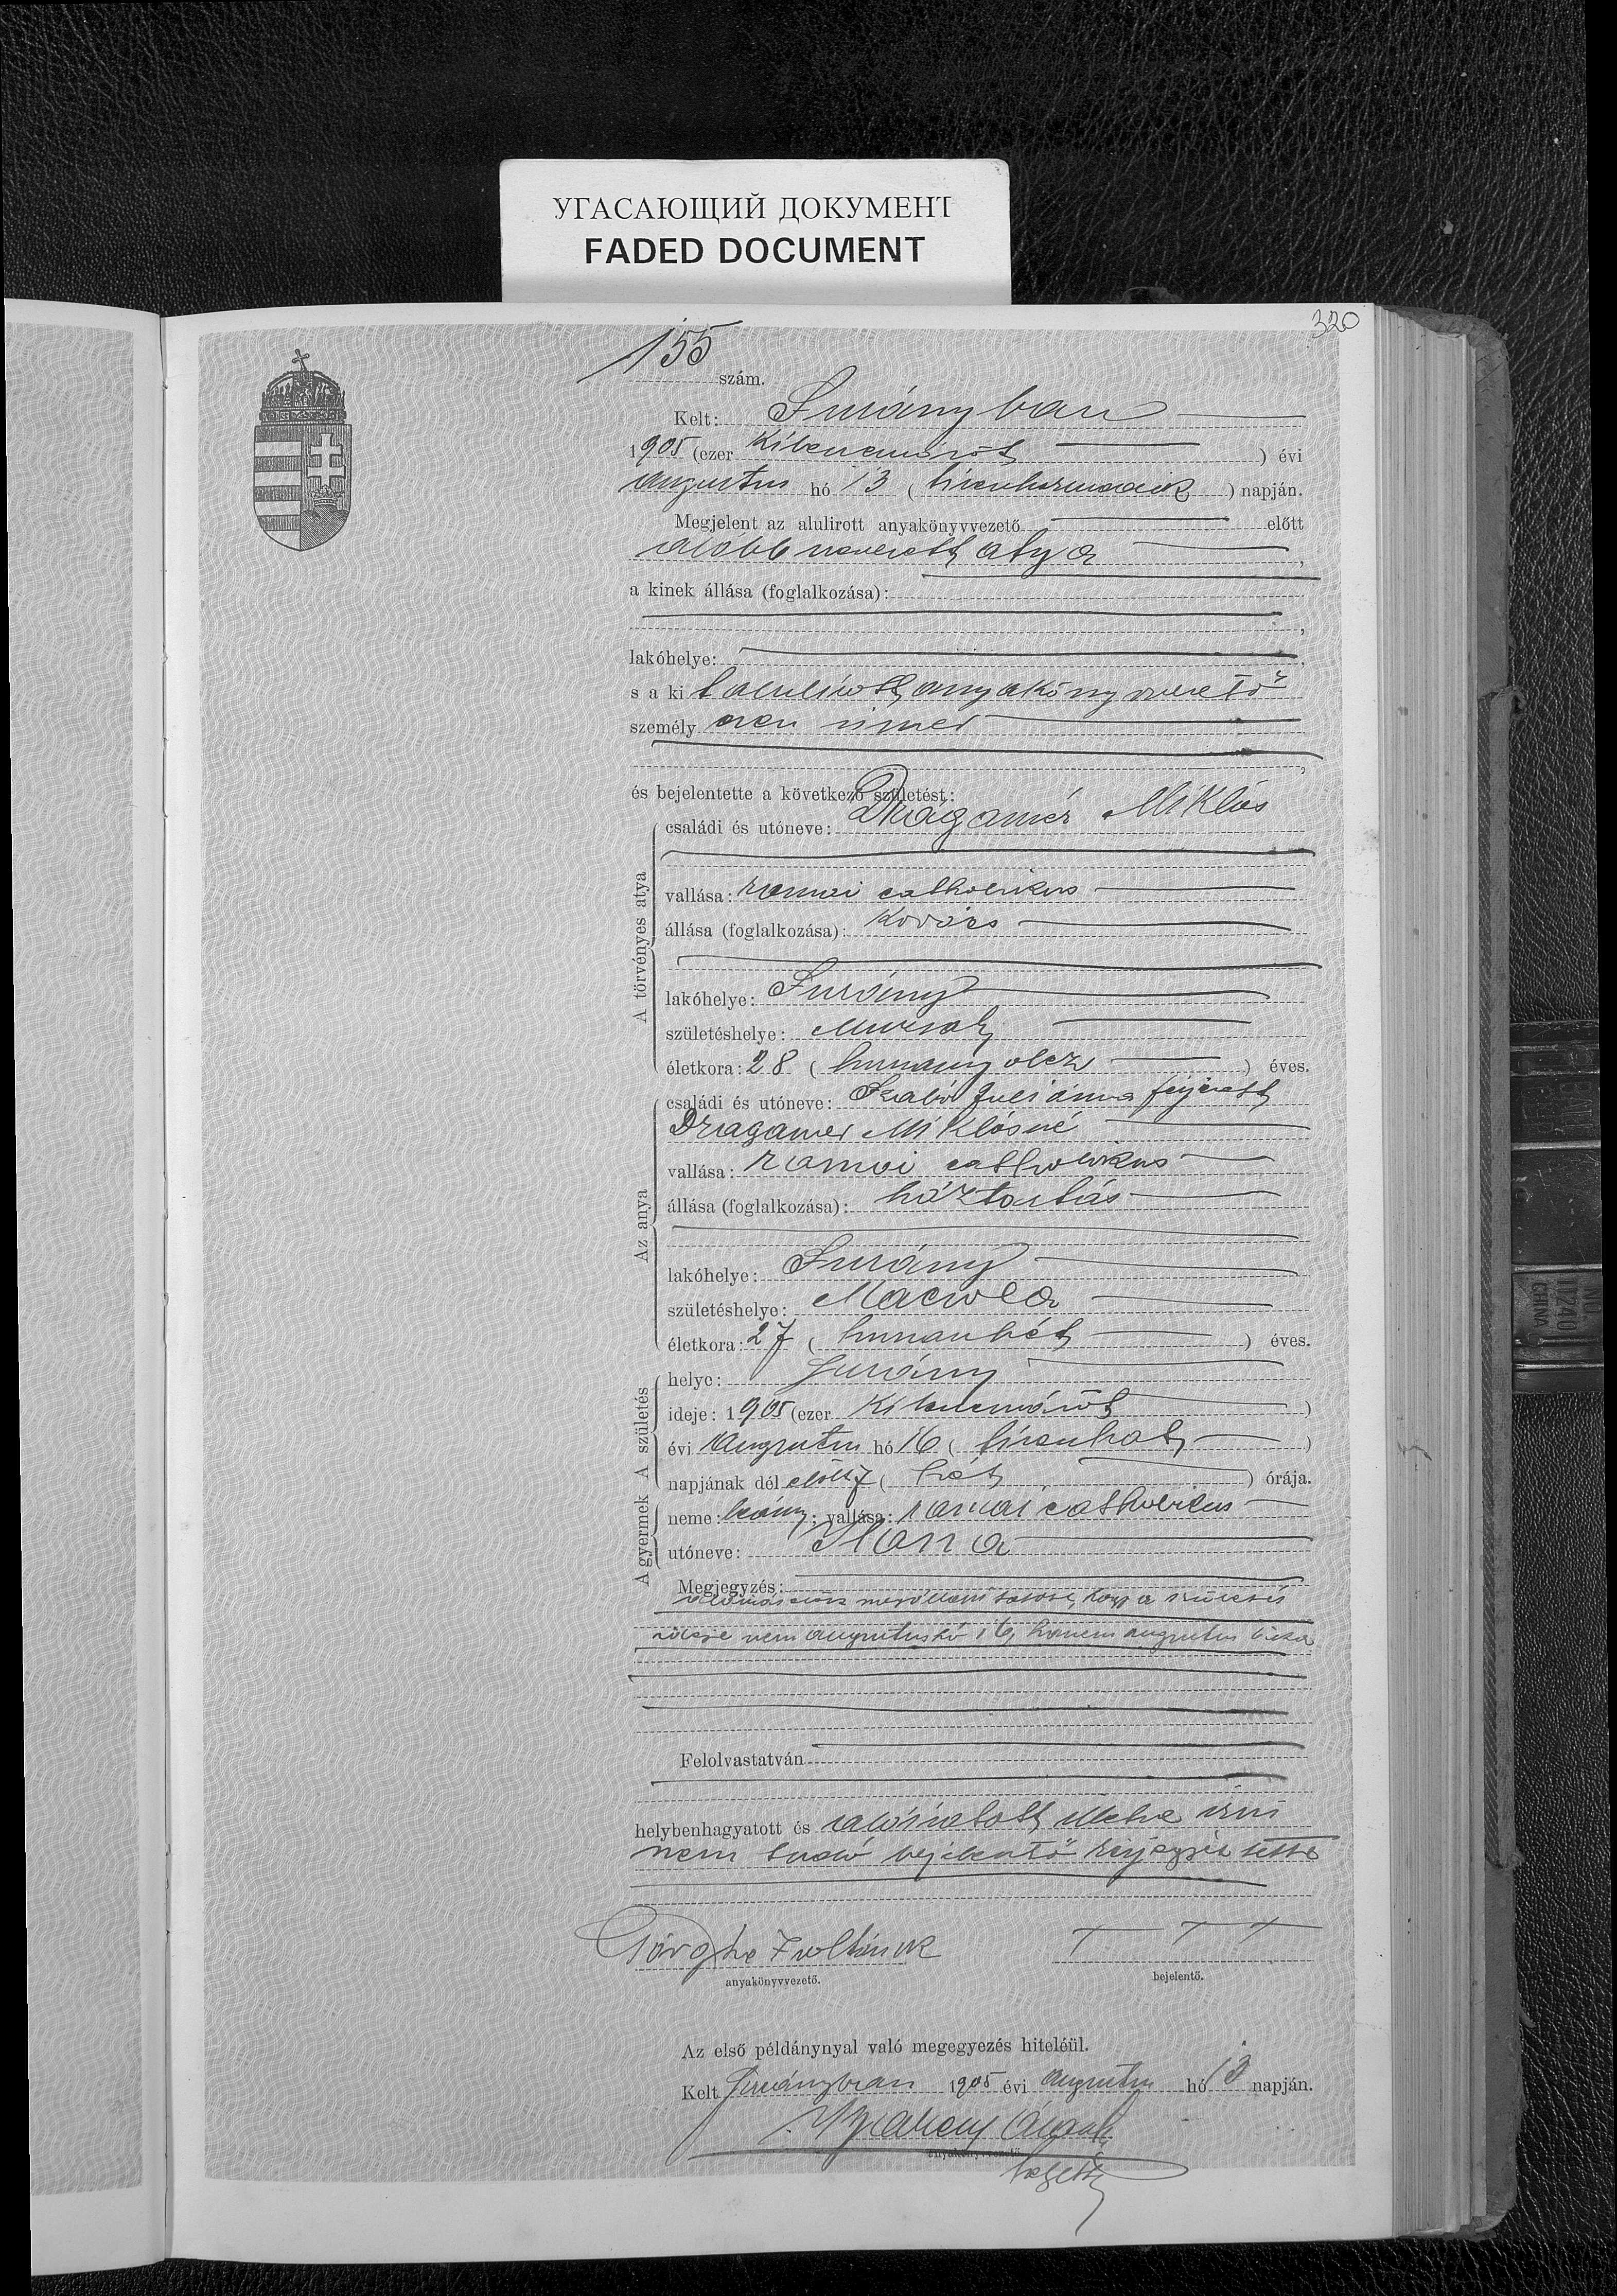 УГАСАЮЩИЙ ДОКУМЕНТ
FADED DOCUMENT
320
155 szám.
Kelt: Surányban
1905 (ezer kilencszázöt) évi
augusztus hó 13 (tizenharmadik) napján.
Megjelent az alulirott anyakönyvvezető előtt
alább nevezett atya,
a kinek állása (foglalkozása):
lakóhelye:
s a kit alulírott anyakönyvvezető
személyesen ismer
és bejelentette a következő születést:
A törvényes atya
családi és utóneve: Drágamér Miklós
vallása: romai catholikus
állása (foglalkozása): Kovács
lakóhelye: Surány
születéshelye:
életkora: 28 (huszonnyolcz) éves.
Az anya
családi és utóneve: Szabó Juliánna férjezett
Dragamer Miklósné
vallása: romai catholikus
állása (foglalkozása): háztartás
lakóhelye: Surány
születéshelye:
életkora: 27 (huszonhét) éves.
A születés
helye: Surány
ideje: 1905 (ezer kilencszázöt)
évi augusztus hó 16 (tizenhat)
napjának dél előtt 7 (hét) órája.
A gyermek
neme: leány; vallása: romai catholicus
utóneve: Ilona
Megjegyzés:
hogy a születés
ideje nem augusztus hó 16, hanem augusztus
Felolvastatván
helybenhagyatott és aláíratott, illetve írni
nem tudó bejelentő kézjegyét tette
Zoltán sk
anyakönyvvezető. bejelentő.
Az első példánynyal való megegyezés hiteléül.
Kelt Surányban 1905 évi augusztus hó 13 napján.
anyakönyvvezető